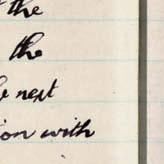 the
the
next
ion with